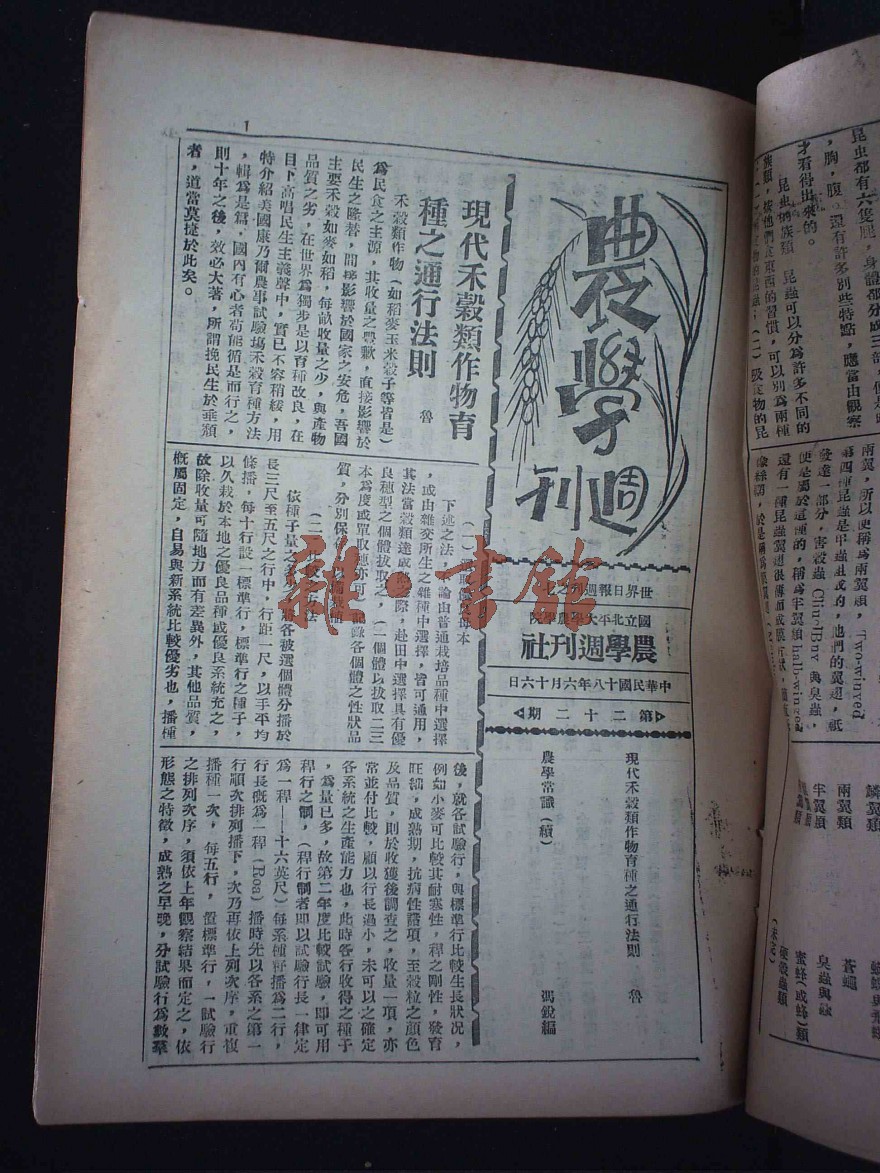 農學
週刊
世界日報週刊之七
國立北平大學農學院
農學週刊社
中華民國十八年六月十六日
第二十二期
現代禾穀類作物育種之通行法則 魯
農學常識(續) 馮銳編
現代禾穀類作物育
種之通行法則 魯
禾穀類作物(如稻麥玉米穀子等皆是)
為民食之主源,其收量之豐歉,直接影響於
民生之隆替,間接影響於國家之安危,吾國
主要禾穀如麥如稻,每畝收量之少,與產物
品質之劣,在世界為獨步是以育種改良,在
目下高唱民生主義聲中,實已不容稍緩,用
特介紹美國康乃爾農事試驗塲禾穀育種方法
,輯為是篇,國內有心者苟能循是而行之,
則十年之後,效必大著,所謂挽民生於垂類
者,道當莫捷於此矣。
(一)
本
下述之法,論由普通栽培品種中選擇
,或由雜交所生之雜種中選擇,皆可通用,
其法當穀類達成際,赴田中選擇具有優
良穗型之個體拔取之,(一個體以拔取二三
本為度或單取穗亦可)記錄各個體之性狀品
質,分別保
(二)法
依種子量之多將各被選個體分播於
長三尺至五尺之行中,行距一尺,以手平均
條播,每十行設一標準行,標準行之種子,
以久栽於本地之優良品種或優良系統充之,
故除收量可隨地力而有差異外,其他品質,
概屬固定,自易與新系統比較優劣也,播種
後,就各試驗行,與標準行比較生長狀況,
例如小麥可比較其耐塞性,稈之剛性,發育
旺絀,成熟期,抗病性諸項,至穀粒之顏色
及品質,則於收獲後調查之,收量一項,亦
常並付比較,顧以行長過小,未可以之確定
各系統之生產能力也,此時各行收得之種子
,為量已多,故第二年度比較試驗,即可用
稈行之制,(稈行制者即以試驗行長一律定
為一稈——十六英尺)每系種籽播為二行,
行長概為一稈(Roa)播時先以各系之第一
行順次排列播下,次乃再依上列次序,重複
播種一次,每五行,置標準行,一試驗行
之排列次序,須依上年觀察結果而定之,依
形態之特徵,成熟之早晚,分試驗行為數羣
1
昆虫都有六隻腿,身體都分成三部,
,胸,腹,還有許多別些特點,應當由觀察
才看得出來的。
昆虫的族類 昆蟲可以分為許多不同的
族類,依他們食東西的習慣,可以別為兩種
兩翼,所以便稱為兩翼類,
發達一部分,害穀蟲
便是屬於這種的,稱為半翅類
鱗翼類
兩翼類
半翼類
蒼蠅
臭蟲與
蜜蜂(或蜂)類
硬殼蟲類
(未完)
雜·書館